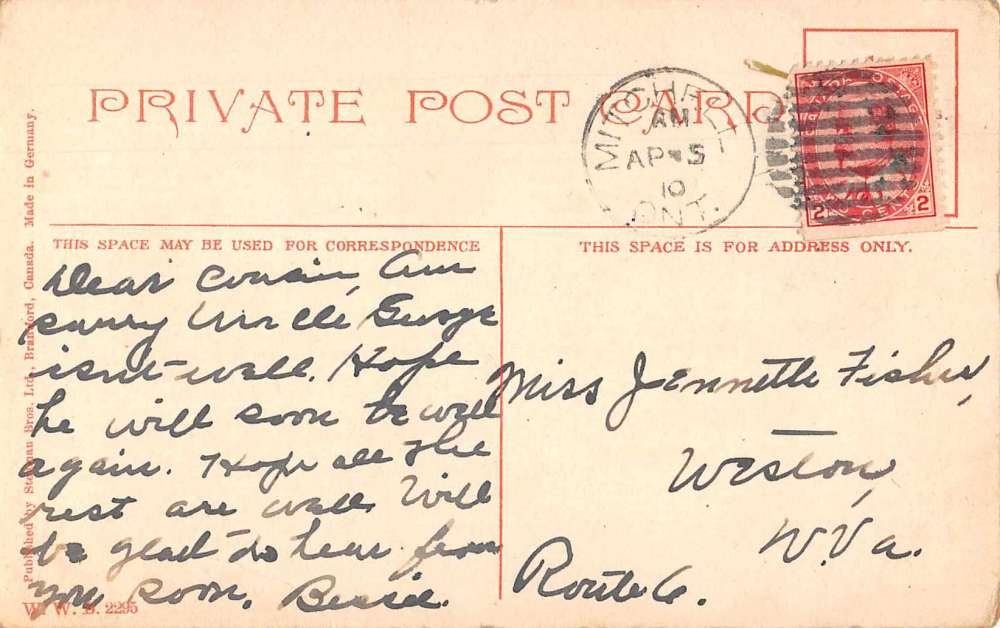 PRIVATE POST CARD
MITCHELL
AM
AP 5
10
ONT.
2 CENTS 2
THIS SPACE MAY BE USED FOR CORRESPONDENCE
Dear Cousin, Am
surry Uncle George
isnt well. Hope
he will soon be well
again. Hope all the
rest are well. Will
be glad to hear from
you soon. Bessie.
THIS SPACE IS FOR ADDRESS ONLY.
Miss Jennette Fisher,
Weston,
W. Va.
Route 6.
Published by Stedman Bros. Ltd., Brantford, Canada. Made in Germany.
W. W. B. 2295